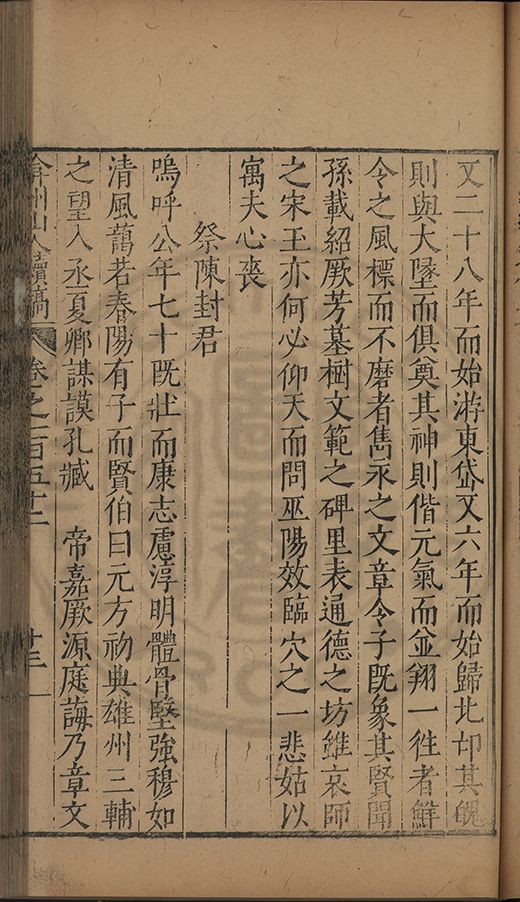 又二十八年而始游東岱又六年而始歸北邙其魄
則與大墬而俱奠其神則偕元氣而並翔一徃者鮮
令之風標而不磨者雋永之文章令子旣象其賢聞
孫載紹厥芳墓樹文範之碑里表通德之坊維哀師
之宋玉亦何必仰天而問巫陽效臨穴之一悲姑以
寓夫心喪
祭陳封君
嗚呼公年七十旣壯而康志慮淳明體骨堅強穆如
清風藹若春陽有子而賢伯曰元方初典雄州三輔
之望入丞夏卿謀謨孔臧 帝嘉厥源庭誨乃章文
弇州山人續稿 卷之一百五十二 廿三